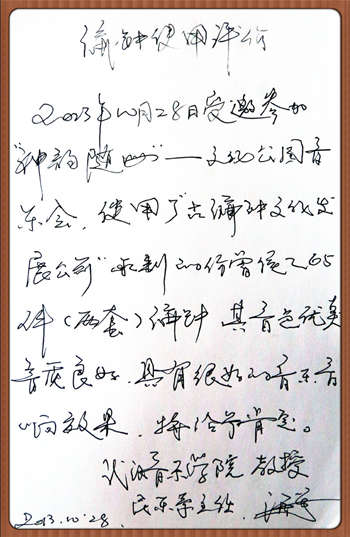 编钟使用评价
2013年10月28日受邀参加
"神韵随州"——文化公园音
乐会,使用了"古编钟文化发
展公司"承制的仿曾侯乙65
件(两套)编钟 其音色优美
音质良好,具有很好的音乐音
响效果,特给予肯定。
武汉音乐学院 教授
民乐系主任
2013.10.28.